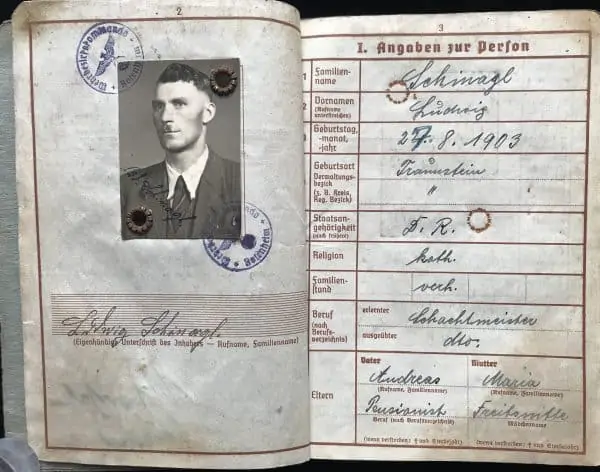 2
Wehrbezirkskommando
Rosenheim
Ludwig Schinagl.
(Eigenhändige Unterschrift des Inhabers — Rufname, Familienname)
3
I. Angaben zur Person
1 Familien-
name
Schinagl
2 Vornamen
(Rufname
unterstreichen)
Ludwig
3 Geburtstag,
-monat,
-jahr
27. 8. 1903
Geburtsort
Verwaltungs-
bezirk
(z. B. Kreis,
Reg. Bezirk)
Traunstein
"
Staatsan-
gehörigkeit
(auch frühere)
D. R.
Religion
kath.
Familien-
stand
verh.
Beruf
(nach
Berufs-
verzeichnis)
erlernter
Schachtmeister
ausgeübter
dto.
Eltern
Vater
Andreas
(Rufname, Familienname)
Pensionist
Beruf (nach Berufsverzeichnis)
(wenn verstorben: † und Sterbejahr)
Mutter
Maria
(Rufname, Familienname)
Mädchenname
(wenn verstorben: † und Sterbejahr)